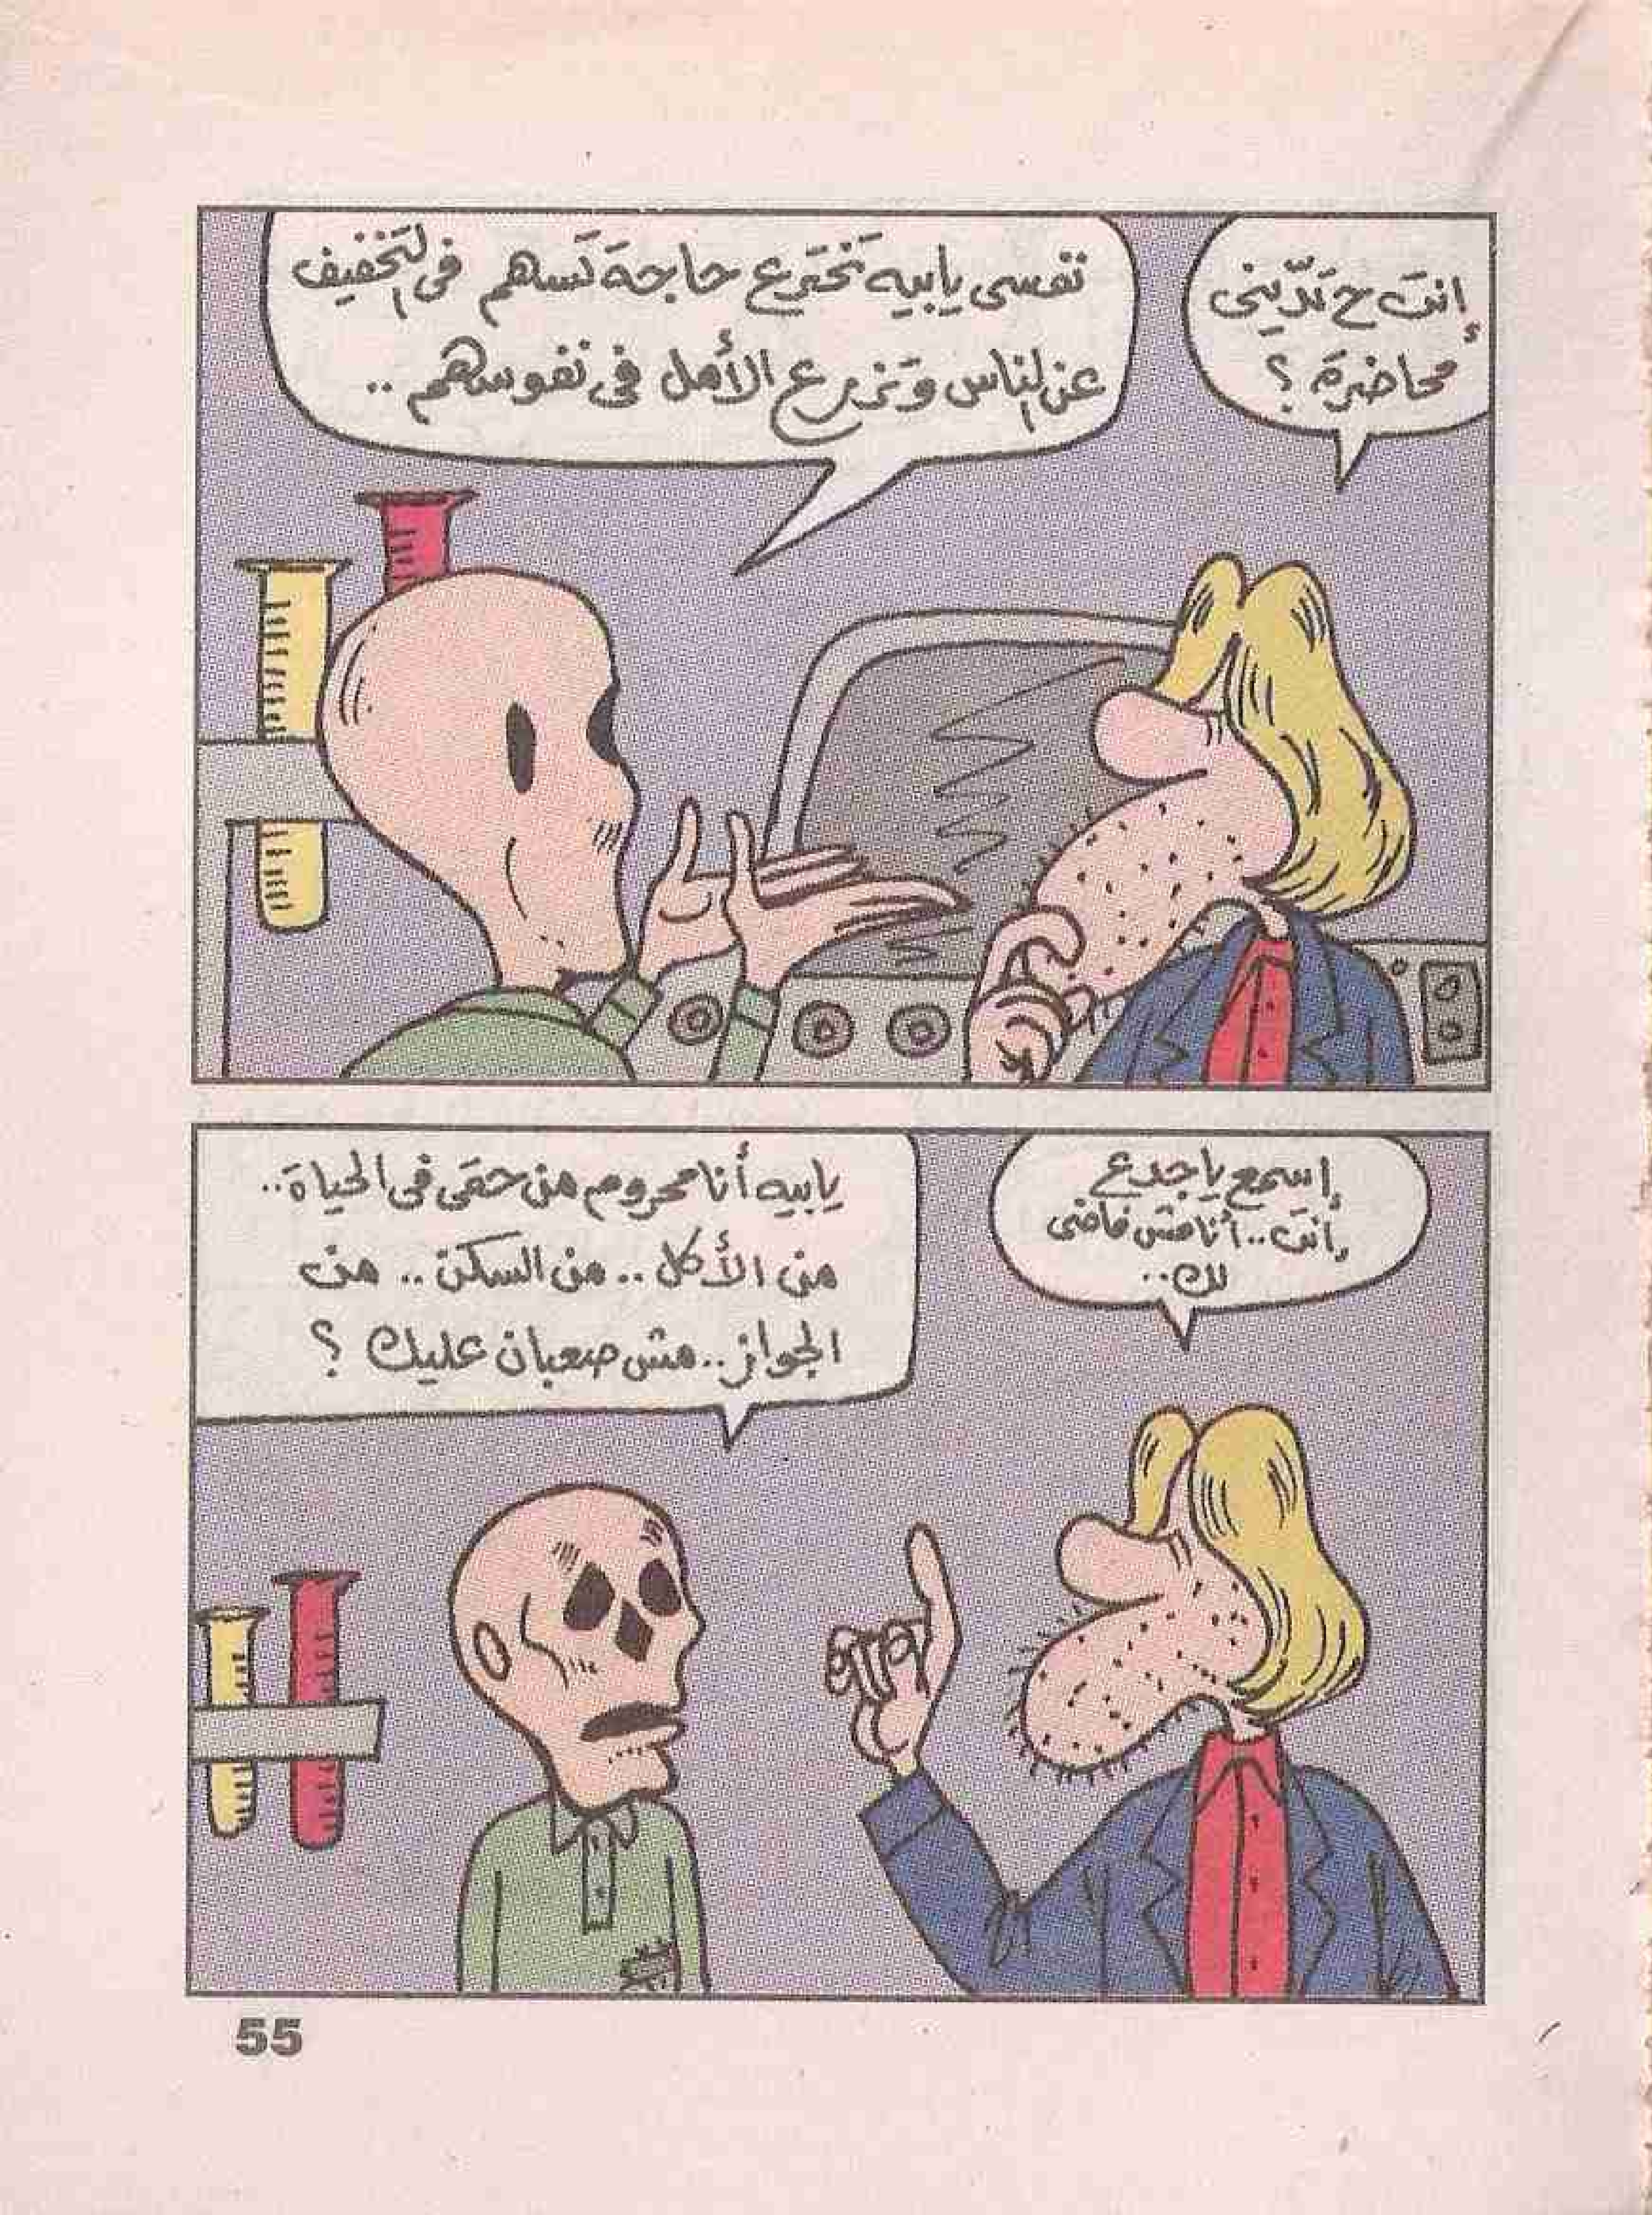 إنت ح تدّيني
محاضرة ؟
نفسى يابيه تخترع حاجة تساهم فى التخفيف
عن الناس وتزرع الأمل فى نفوسهم ..
إسمع ياجدع
إنت .. أنا مش فاضى
لك ..
يابيه أنا محروم من حقى فى الحياة ..
من الأكل .. من السكن .. من
الجواز .. مش صعبان عليك ؟
55